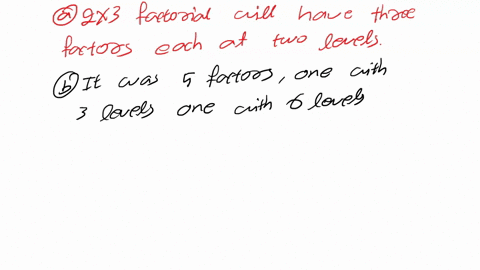 (a) 2x3 factorial will have three
factors each at two levels.
(b) It was 5 factors, one with
3 levels one with 6 levels